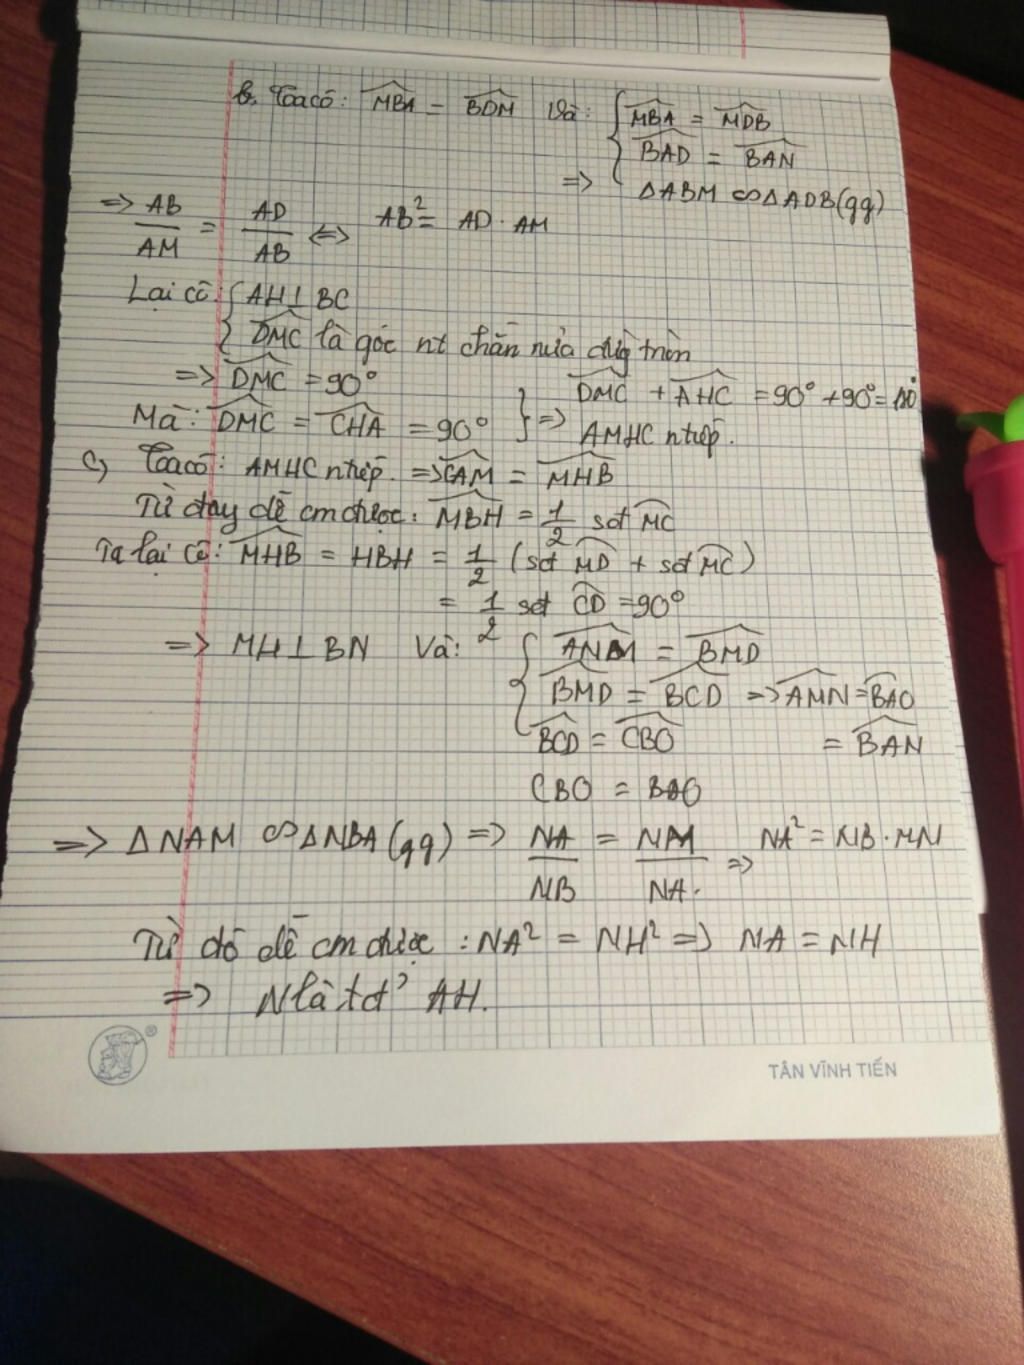 b, Ta có: MBA = BDM Và: { MBA = MDB
BAD = BAN
=> ΔABM ∽ ΔADB (gg)
=> AB/AM = AD/AB <=> AB² = AD · AM
Lại có: { AH ⊥ BC
DMC là góc nt chắn nửa đg tròn
=> DMC = 90°
Mà: DMC = CHA = 90° } => DMC + AHC = 90° + 90° = 180°
AMHC ntiếp.
c, Ta có: AMHC ntiếp. => CAM = MHB
Từ đay dễ cm được: MBH = 1/2 sđ MC
Ta lại có: MHB = HBH = 1/2 (sđ MD + sđ MC)
= 1/2 sđ CD = 90°
=> MH ⊥ BN Và: { ANM = BMD
BMD = BCD => AMN = BAO
BCD = CBO = BAN
CBO = BAO
=> ΔNAM ∽ ΔNBA (gg) => NA/NB = NM/NA. => NA² = NB · MN
Từ đó dễ cm được : NA² = NH² => NA = NH
=> N là tđ' AH.
®
TÂN VĨNH TIẾN